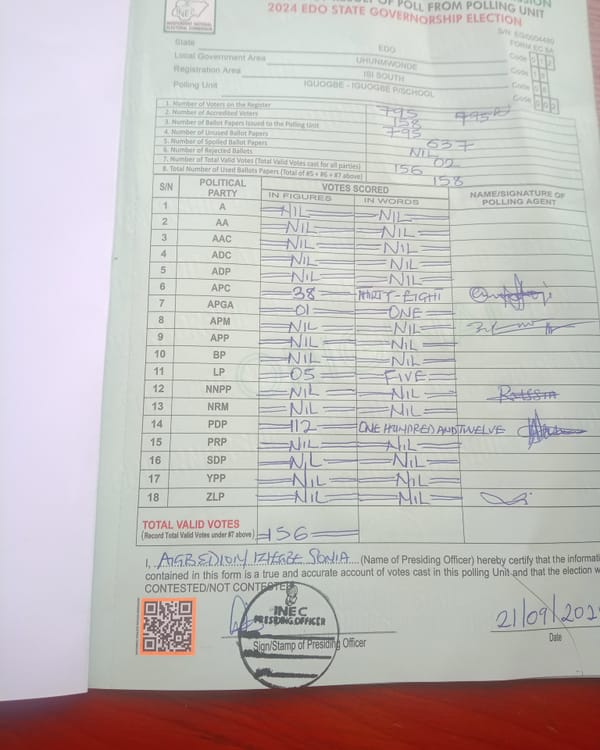 OF POLL FROM POLLING UNIT
2024 EDO STATE GOVERNORSHIP ELECTION
INEC
INDEPENDENT NATIONAL ELECTORAL COMMISSION
FORM EC 8A
State EDO Code
Local Government Area UHUNMWONDE Code
Registration Area ISI SOUTH Code
Polling Unit IGUOGBE - IGUOGBE P/SCHOOL Code
1. Number of Voters on the Register 795 795
2. Number of Accredited Voters 158
3. Number of Ballot Papers Issued to the Polling Unit 795
4. Number of Unused Ballot Papers 637
5. Number of Spoiled Ballot Papers NIL
6. Number of Rejected Ballots 02
7. Number of Total Valid Votes (Total Valid Votes cast for all parties) 156
8. Total Number of Used Ballots Papers (Total of #5 + #6 + #7 above) 158
S/N POLITICAL PARTY VOTES SCORED NAME/SIGNATURE OF POLLING AGENT
IN FIGURES IN WORDS
1 A NIL NIL
2 AA NIL NIL
3 AAC NIL NIL
4 ADC NIL NIL
5 ADP NIL NIL
6 APC 38 THIRTY-EIGHT
7 APGA 01 ONE
8 APM NIL NIL
9 APP NIL NIL
10 BP NIL NIL
11 LP 05 FIVE
12 NNPP NIL NIL
13 NRM NIL NIL
14 PDP 112 ONE HUNDRED AND TWELVE
15 PRP NIL NIL
16 SDP NIL NIL
17 YPP NIL NIL
18 ZLP NIL NIL
TOTAL VALID VOTES
(Record Total Valid Votes under #7 above) 156
I, SONIA (Name of Presiding Officer) hereby certify that the
contained in this form is a true and accurate account of votes cast in this polling Unit and that the election
CONTESTED/NOT CONTESTED
INEC
PRESIDING OFFICER
Sign/Stamp of Presiding Officer
21/09/202
Date